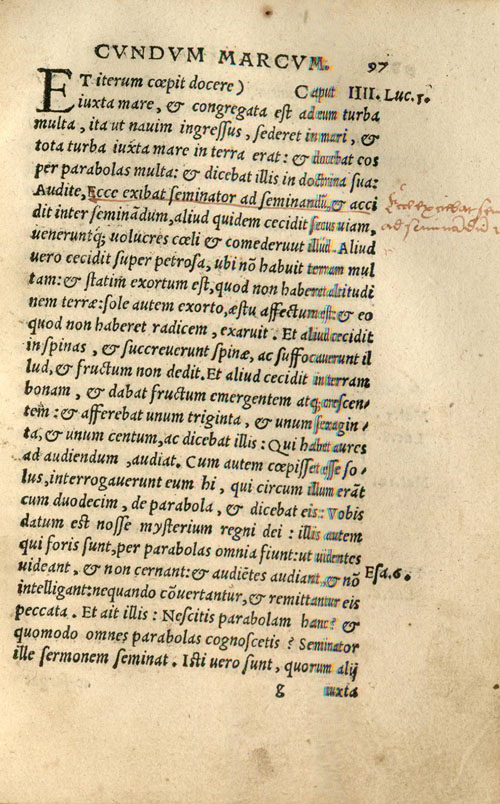 CVNDVM MARCVM. 97
ET iterum cœpit docere) Caput IIII. Luc. 5.
iuxta mare, & congregata est ad eum turba
multa, ita ut nauim ingressus, sederet in mari, &
tota turba iuxta mare in terra erat: & docebat eos
per parabolas multa: & dicebat illis in doctrina sua:
Audite, Ecce exibat seminator ad seminandū, & acci
dit inter seminādum, aliud quidem cecidit secus uiam,
ueneruntq; uolucres cœli & comederunt illud. Aliud
uero cecidit super petrosa, ubi nō habuit terram mul
tam: & statim exortum est, quod non haberet altitudi
nem terræ: sole autem exorto, æstu affectum est: & eo
quod non haberet radicem, exaruit. Et aliud cecidit
in spinas, & succreuerunt spinæ, ac suffocauerunt il
lud, & fructum non dedit. Et aliud cecidit in terram
bonam, & dabat fructum emergentem atq; crescen-
tem: & afferebat unum triginta, & unum sexagin-
ta, & unum centum, ac dicebat illis: Qui habet aures
ad audiendum, audiat. Cum autem cœpisset esse so-
lus, interrogauerunt eum hi, qui circum illum erāt
cum duodecim, de parabola, & dicebat eis: Vobis
datum est nosse mysterium regni dei: illis autem
qui foris sunt, per parabolas omnia fiunt: ut uidentes
uideant, & non cernant: & audiētes audiant, & nō Esa. 6.
intelligant: nequando cōuertantur, & remittantur eis
peccata. Et ait illis: Nescitis parabolam hanc? &
quomodo omnes parabolas cognoscetis? Seminator
ille sermonem seminat. Isti uero sunt, quorum alij
g iuxta